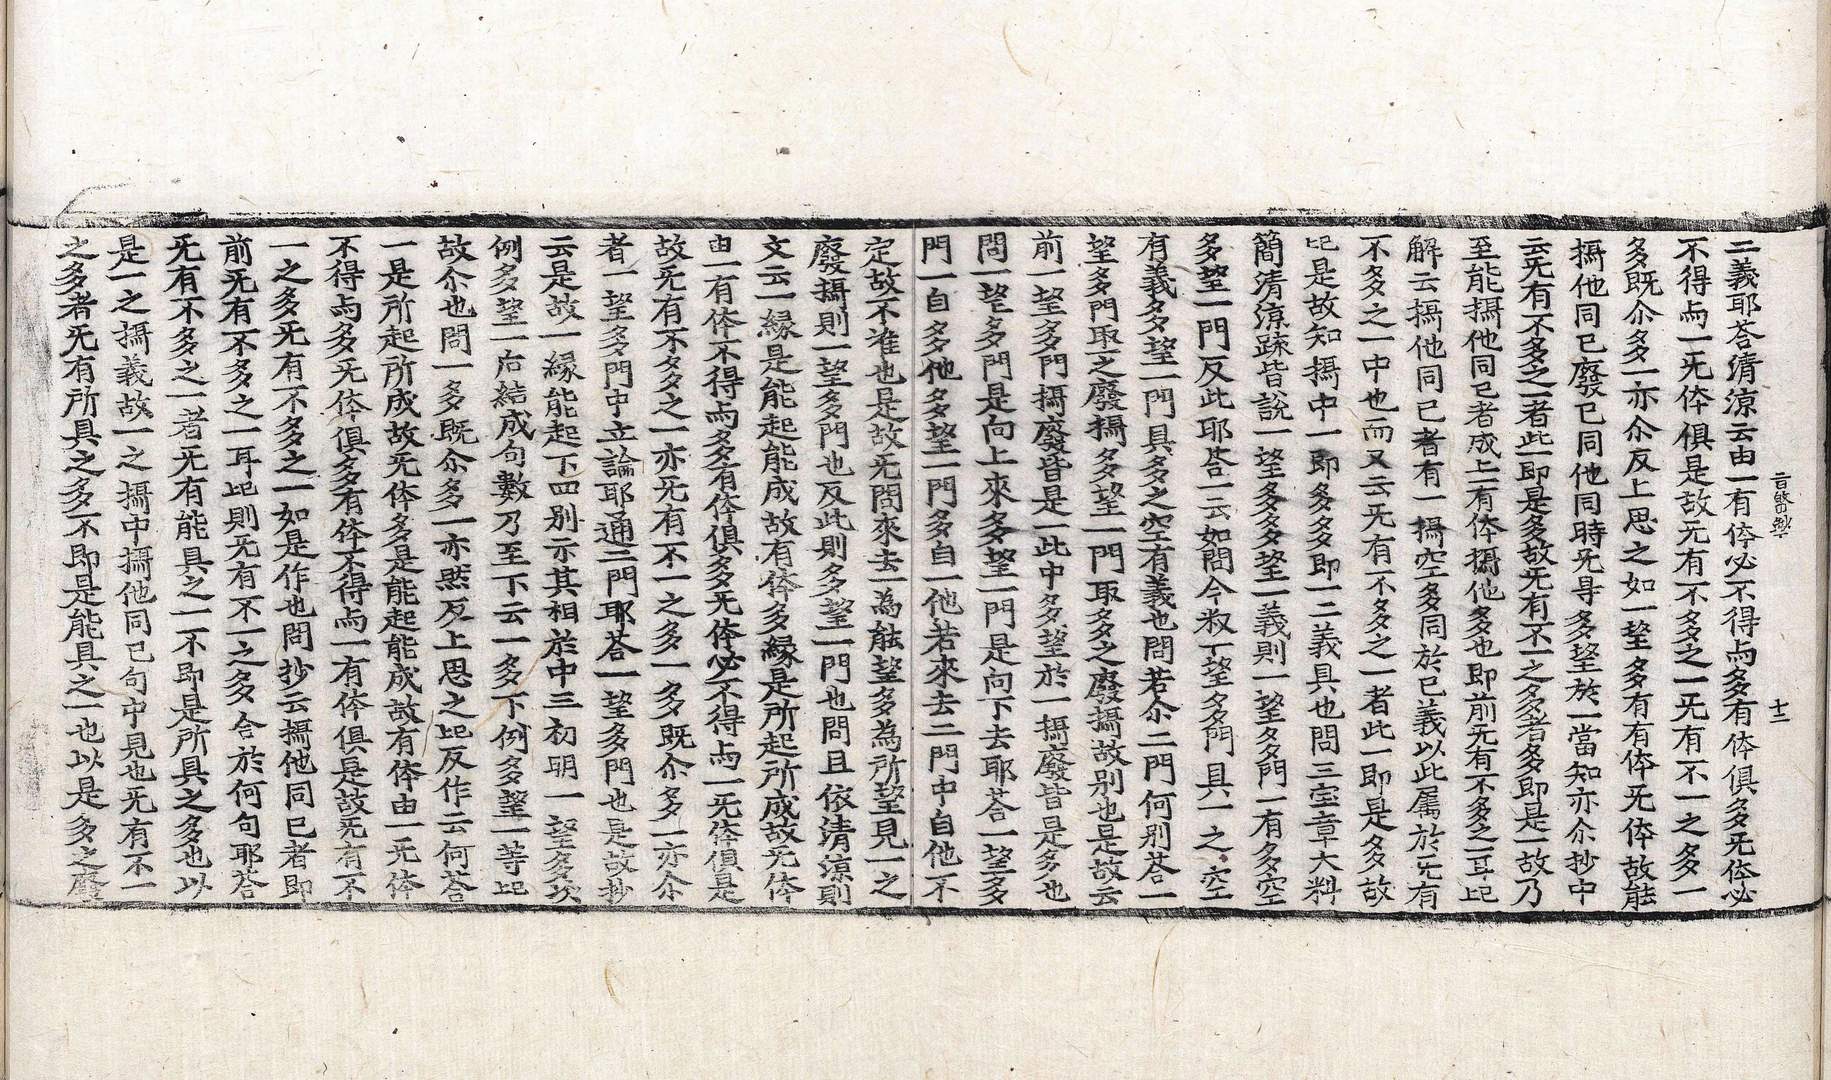 二義耶荅清涼云由一有体必不得与多有体俱多旡体必
不得与一旡体俱是故旡有不多之一旡有不一之多一
多既尒多一亦尒反上思之如一望多有有体旡体故能
攝他同已廢已同他同時旡㝵多望於一當知亦尒抄中
云旡有不多之一者此一即是多故旡有不一之多者多即是一故乃
至能攝他同已者成上有体攝他多也即前旡有不多之一耳此
解云攝他同已者有一攝空多同於已義以此属於旡有
不多之一中也而又云旡有不多之一者此一即是多故
此是故知攝中一即多多即一二義具也問三宝章大料
簡清涼䟽皆說一望多多望一義則一望多門一有多空
多望一門反此耶荅一云如問今叙一望多門具一之空
有義多望一門具多之空有義也問若尒二門何別荅一
望多門取一之廢攝多望一門取多之廢攝故別也是故云
前一望多門攝廢皆是一此中多望於一攝廢皆是多也
問一望多門是向上來多望一門是向下去耶荅一望多
門一自多他多望一門多自一他若來去二門中自他不
定故不准也是故旡問來去一為能望多為所望見一之
廢攝則一望多門也反此則多望一門也問且依清涼則
文云一縁是能起能成故有体多縁是所起所成故旡体
由一有体不得与多有体俱多旡体必不得与一旡体俱是
故旡有不多之一亦旡有不一之多一多既尒多一亦尒
者一望多門中立論耶通二門耶荅一望多門也是故抄
云是故一縁能起下四別示其相於中三初明一望多次
例多望一后結成句數乃至下云一多下例多望一等此
故尒也問一多既尒多一亦然反上思之此反作云何荅
一是所起所成故旡体多是能起能成故有体由一旡体
不得与多旡体俱多有体不得与一有体俱是故旡有不
一之多旡有不多之一如是作也問抄云攝他同已者即
前旡有不多之一耳此則旡有不一之多合於何句耶荅
旡有不多之一者旡有能具之一不即是所具之多也以
是一之攝義故一之攝中攝他同已句中見也旡有不一
之多者旡有所具之多不即是能具之一也以是多之廢
十二